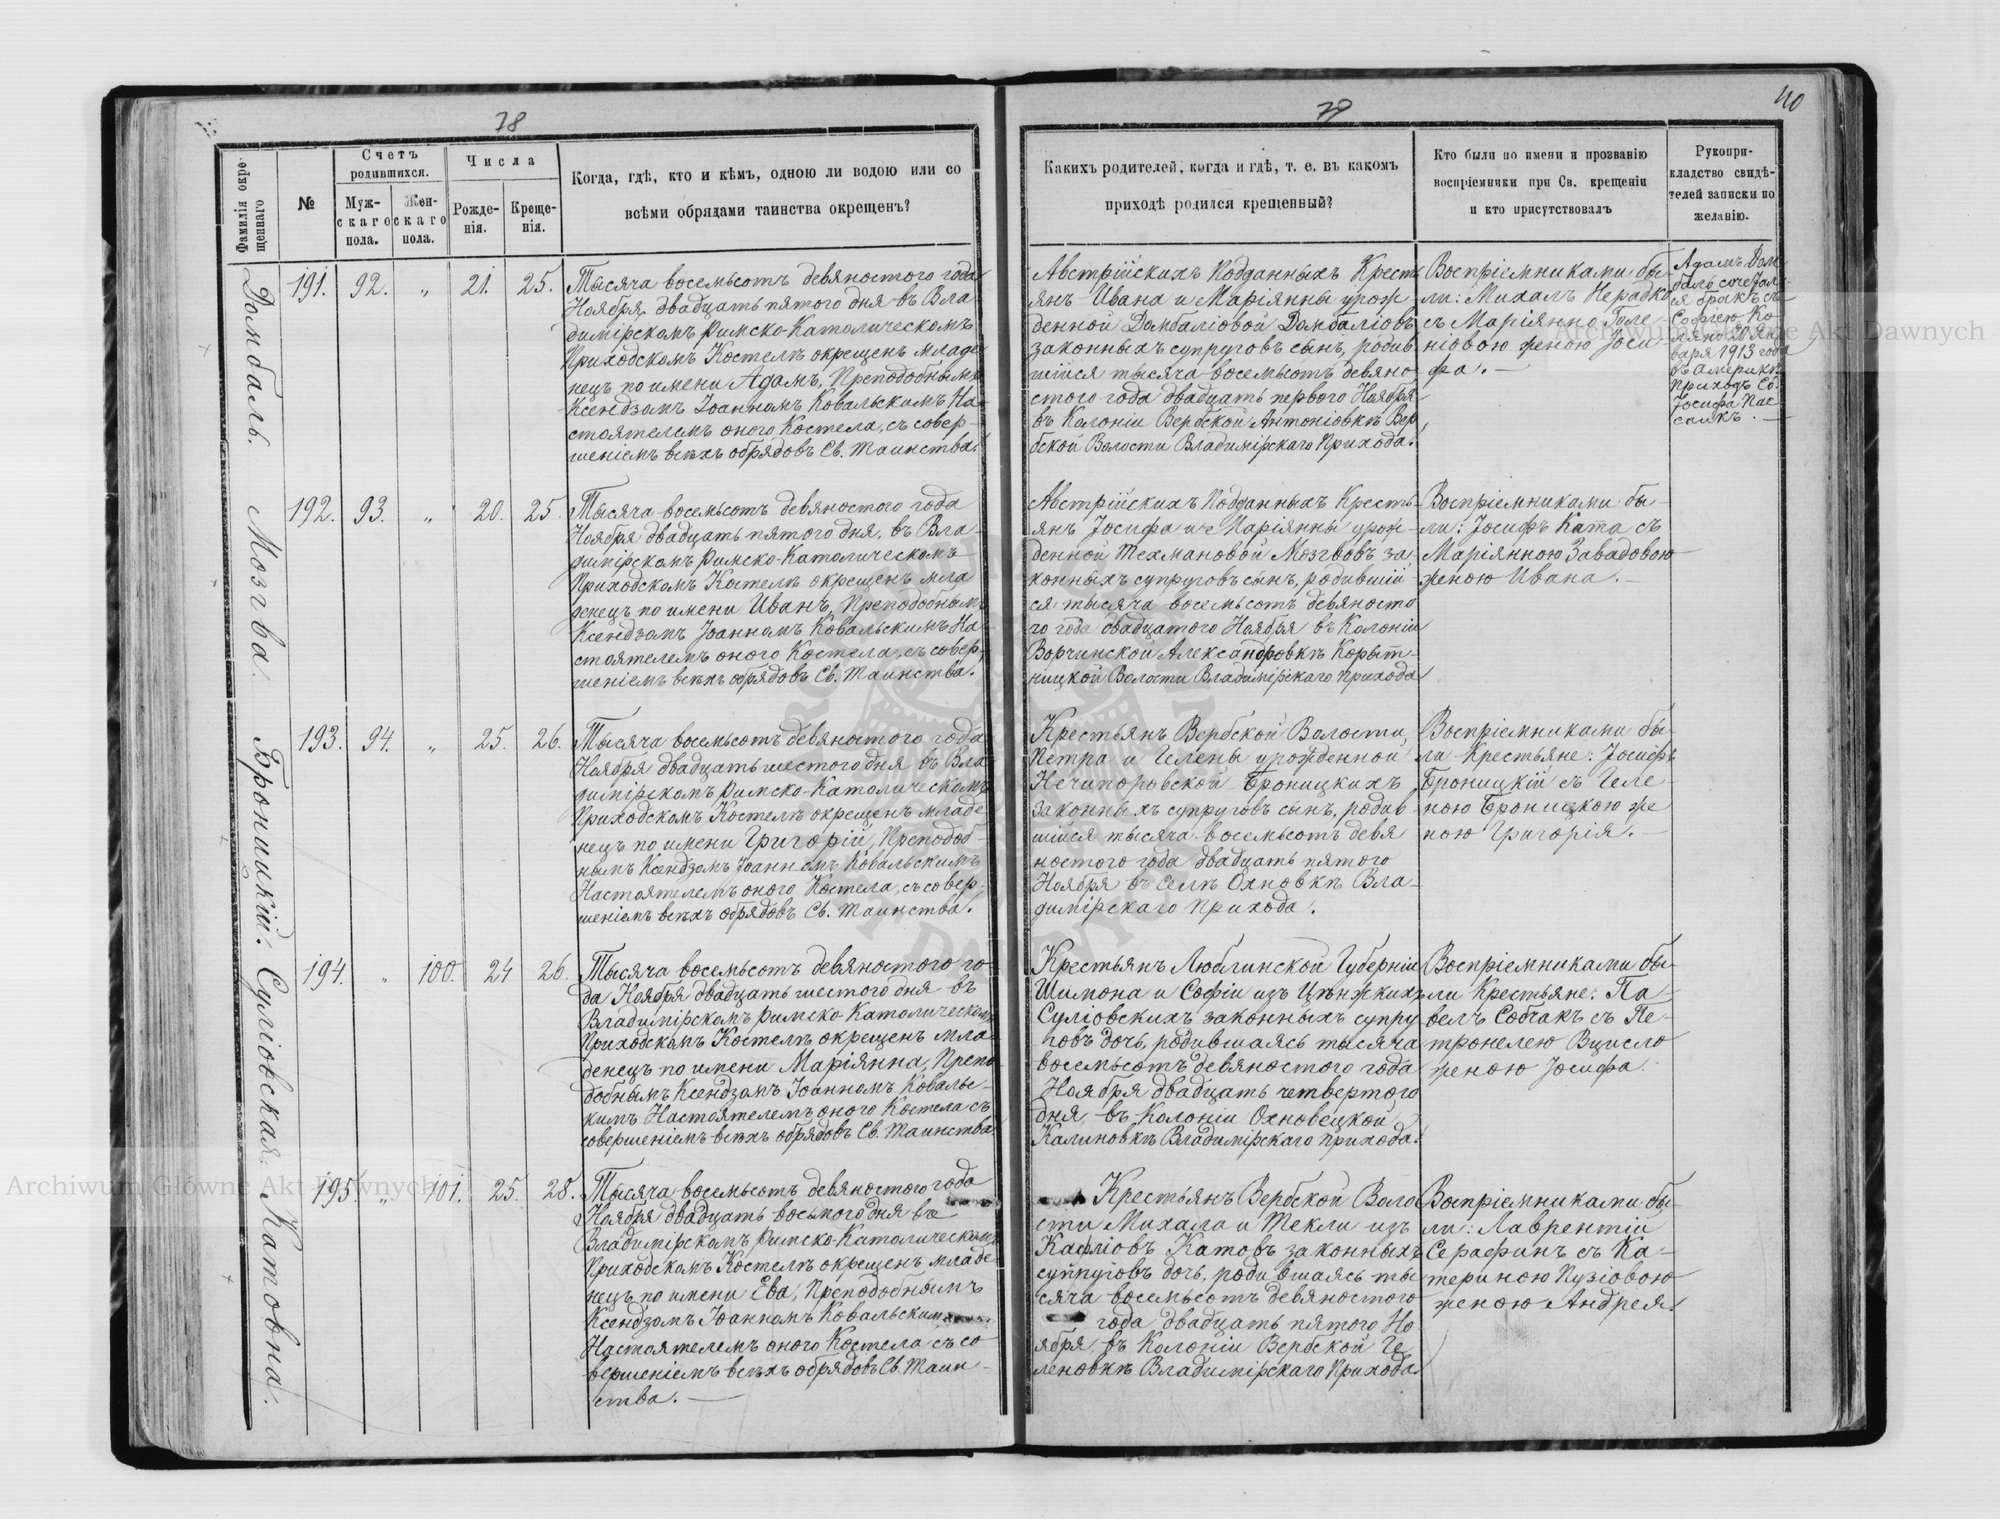 78
Фамилія окрещеннаго
№
Счетъ родившихся.
Мужскаго пола.
Женскаго пола.
Числа
Рожденія.
Крещенія.
Когда, гдѣ, кто и кѣмъ, одною ли водою или со
всѣми обрядами таинства окрещенъ?
Домбаль.
191. 92. „ 21. 25.
Тысяча восемьсотъ девяностого года
Ноября двадцать пятого дня въ Вла-
димірскомъ Римско-Католическомъ
Приходскомъ Костелѣ окрещенъ младе-
нецъ по имени Адамъ, Преподобнымъ
Ксендзомъ Іоанномъ Ковальскимъ На-
стоятелемъ оного Костела, съ совер-
шеніемъ всѣхъ обрядовъ Св. Таинства.
Мозгва.
192. 93. „ 20. 25.
Тысяча восемьсотъ девяностого года
Ноября двадцать пятого дня, въ Вла-
димірскомъ Римско-Католическомъ
Приходскомъ Костелѣ окрещенъ мла
денецъ по имени Иванъ, Преподобнымъ
Ксендзомъ Іоанномъ Ковальскимъ На-
стоятелемъ оного Костела, съ совер-
шеніемъ всѣхъ обрядовъ Св. Таинства.
Броницкій.
193. 94. „ 25. 26.
Тысяча восемьсотъ девяностого года
Ноября двадцать шестого дня въ Вла
димірскомъ Римско-Католическомъ
Приходскомъ Костелѣ окрещенъ младе
нецъ по имени Григорій, Преподоб-
нымъ Ксендзомъ Іоанномъ Ковальскимъ
Настоятелемъ оного Костела, съ совер-
шеніемъ всѣхъ обрядовъ Св. Таинства.
Суліовская.
194. „ 100. 24 26.
Тысяча восемьсотъ девяностого го-
да Ноября двадцать шестого дня въ
Владимірскомъ Римско-Католическомъ
Приходскомъ Костелѣ окрещенъ мла-
денецъ по имени Маріянна, Препо-
добнымъ Ксендзомъ Іоанномъ Коваль-
кимъ Настоятелемъ оного Костела съ
совершеніемъ всѣхъ обрядовъ Св. Таинства
Катовна.
195. „ 101. 25. 28.
Тысяча восемьсотъ девяностого года
Ноября двадцать восьмого дня въ
Владимірскомъ Римско-Католическомъ
Приходскомъ Костелѣ окрещенъ младе
нецъ по имени Ева, Преподобнымъ
Ксендзомъ Іоанномъ Ковальскимъ
Настоятелемъ оного Костела съ со
вершеніемъ всѣхъ обрядовъ Св. Таин-
ства.
79
40
Какихъ родителей, когда и гдѣ, т. е. въ какомъ
приходѣ родился крещенный?
Кто были по имени и прозванію
воспріемники при Св. крещеніи
и кто присутствовалъ
Рукопри-
кладство свидѣ-
телей записки по
желанію.
Австрійскихъ Подданныхъ Кресть
янъ Ивана и Маріянны урож-
денной Домбаліовой Домбаліовъ
законныхъ супруговъ сынъ, родив
шійся тысяча восемьсотъ девяно
стого года двадцать первого Ноября
въ Колоніи Вербской Антоніовкѣ Вер
бской Волости Владимірскаго Прихода.
Воспріемниками бы-
ли: Михалъ Нерадко
съ Маріянно Голе-
ніовою женою Іоси-
фа.
Адамъ Дом
баль сочетал-
ся бракъ съ
Софіею Ко-
20 Ян-
варя 1913 года
въ Америкѣ
Приходъ Св.
Іосифа Пас
саикъ.
Австрійскихъ Подданныхъ Кресть-
янъ Іосифа и Маріянны урож-
денной Техмановой Мозгвовъ за
конныхъ супруговъ сынъ, родившій
ся тысяча восемьсотъ девяносто
го года двадцатого Ноября въ Колоніи
Ворчинской Александровкѣ Корыт-
ницкой Волости Владимірскаго Прихода
Воспріемниками бы-
ли: Іосифъ Ката съ
Маріянною Завадовою
женою Ивана.
Крестьянъ Вербской Волости,
Петра и Гелены урожденной
Нечипоровской Броницкихъ
законныхъ супруговъ сынъ, родив
шійся тысяча восемьсотъ девя
ностого года двадцать пятого
Ноября въ селѣ Охновкѣ Вла-
димірскаго Прихода.
Воспріемниками бы-
ли Крестьяне: Іосифъ
Броницкій съ Геле-
ною Броницкою же
ною Григорія.
Крестьянъ Люблинской Губерніи
Шимона и Софіи изъ Цѣнжкихъ
Суліовскихъ законныхъ супру
говъ дочь, родившаясь тысяча
восемьсотъ девяностого года
Ноября двадцать четвертого
дня въ Колоніи Охновецкой
Калиновкѣ Владимірскаго Прихода.
Воспріемниками бы-
ли Крестьяне: Па-
велъ Собчакъ съ Пе-
тронелею Вцисло
женою Іосифа.
Крестьянъ Вербской Воло
сти Михала и Текли изъ
Кафліовъ Катовъ законныхъ
супруговъ дочь, родившаясь ты
сяча восемьсотъ девяностого
года двадцать пятого Но
ября, въ Колоніи Вербской Ге
леновкѣ Владимірскаго Прихода
Воспріемниками бы-
ли: Лаврентій
Серафинъ съ Ка-
териною Пузіовою
женою Андрея.
Archiwum Główne Akt Dawnych
Archiwum Główne Akt Dawnych